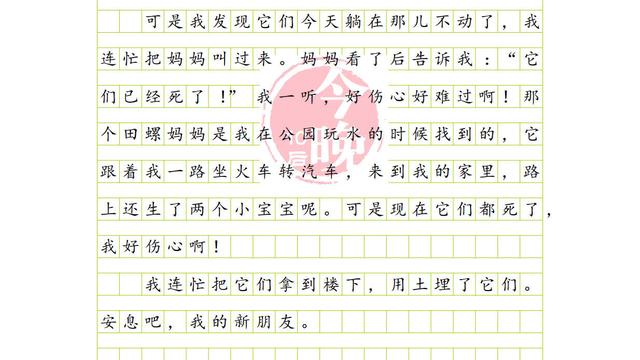 可是我发现它们今天躺在那儿不动了，我
连忙把妈妈叫过来。妈妈看了后告诉我：“它
们已经死了！”我一听，好伤心好难过啊！那
个田螺妈妈是我在公园玩水的时候找到的，它
跟着我一路坐火车转汽车，来到我的家里，路
上还生了两个小宝宝呢。可是现在它们都死了，
我好伤心啊！
我连忙把它们拿到楼下，用土埋了它们。
安息吧，我的新朋友。
今晚